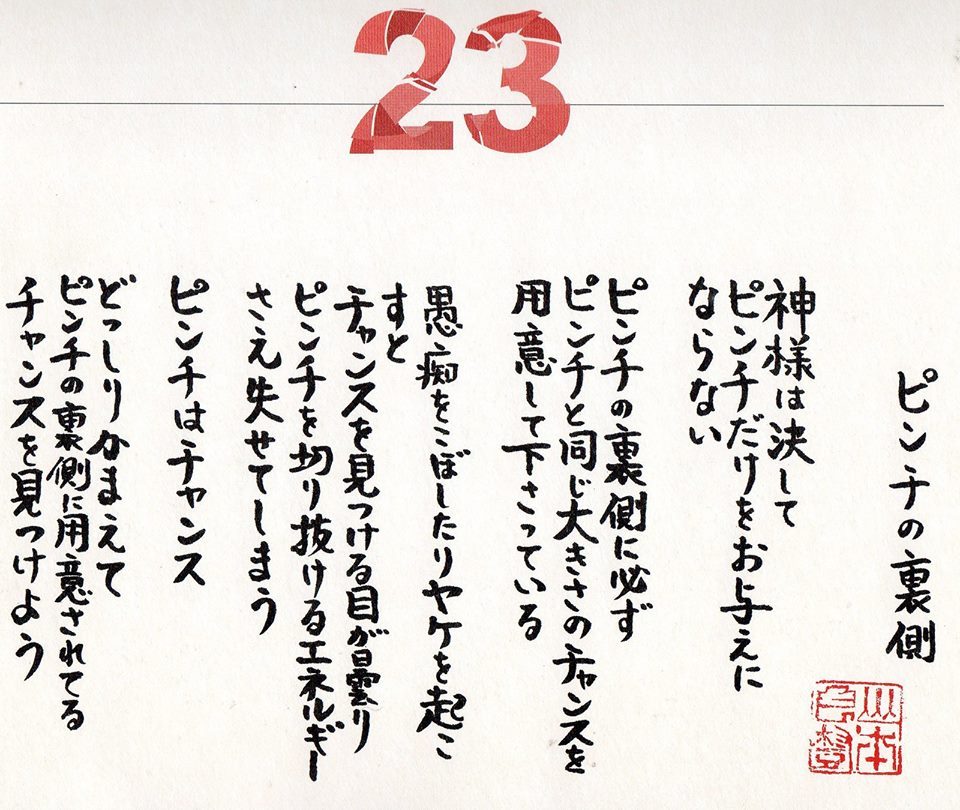 23
ピンチの裏側
山本
神様は決して
ピンチだけをお与えに
ならない
ピンチの裏側に必ず
ピンチと同じ大きさのチャンスを
用意して下さっている
愚痴をこぼしたりヤケを起こ
すと
チャンスを見つける目が曇り
ピンチを切り抜けるエネルギー
さえ失せてしまう
ピンチはチャンス
どっしりかまえて
ピンチの裏側に用意されてる
チャンスを見つけよう